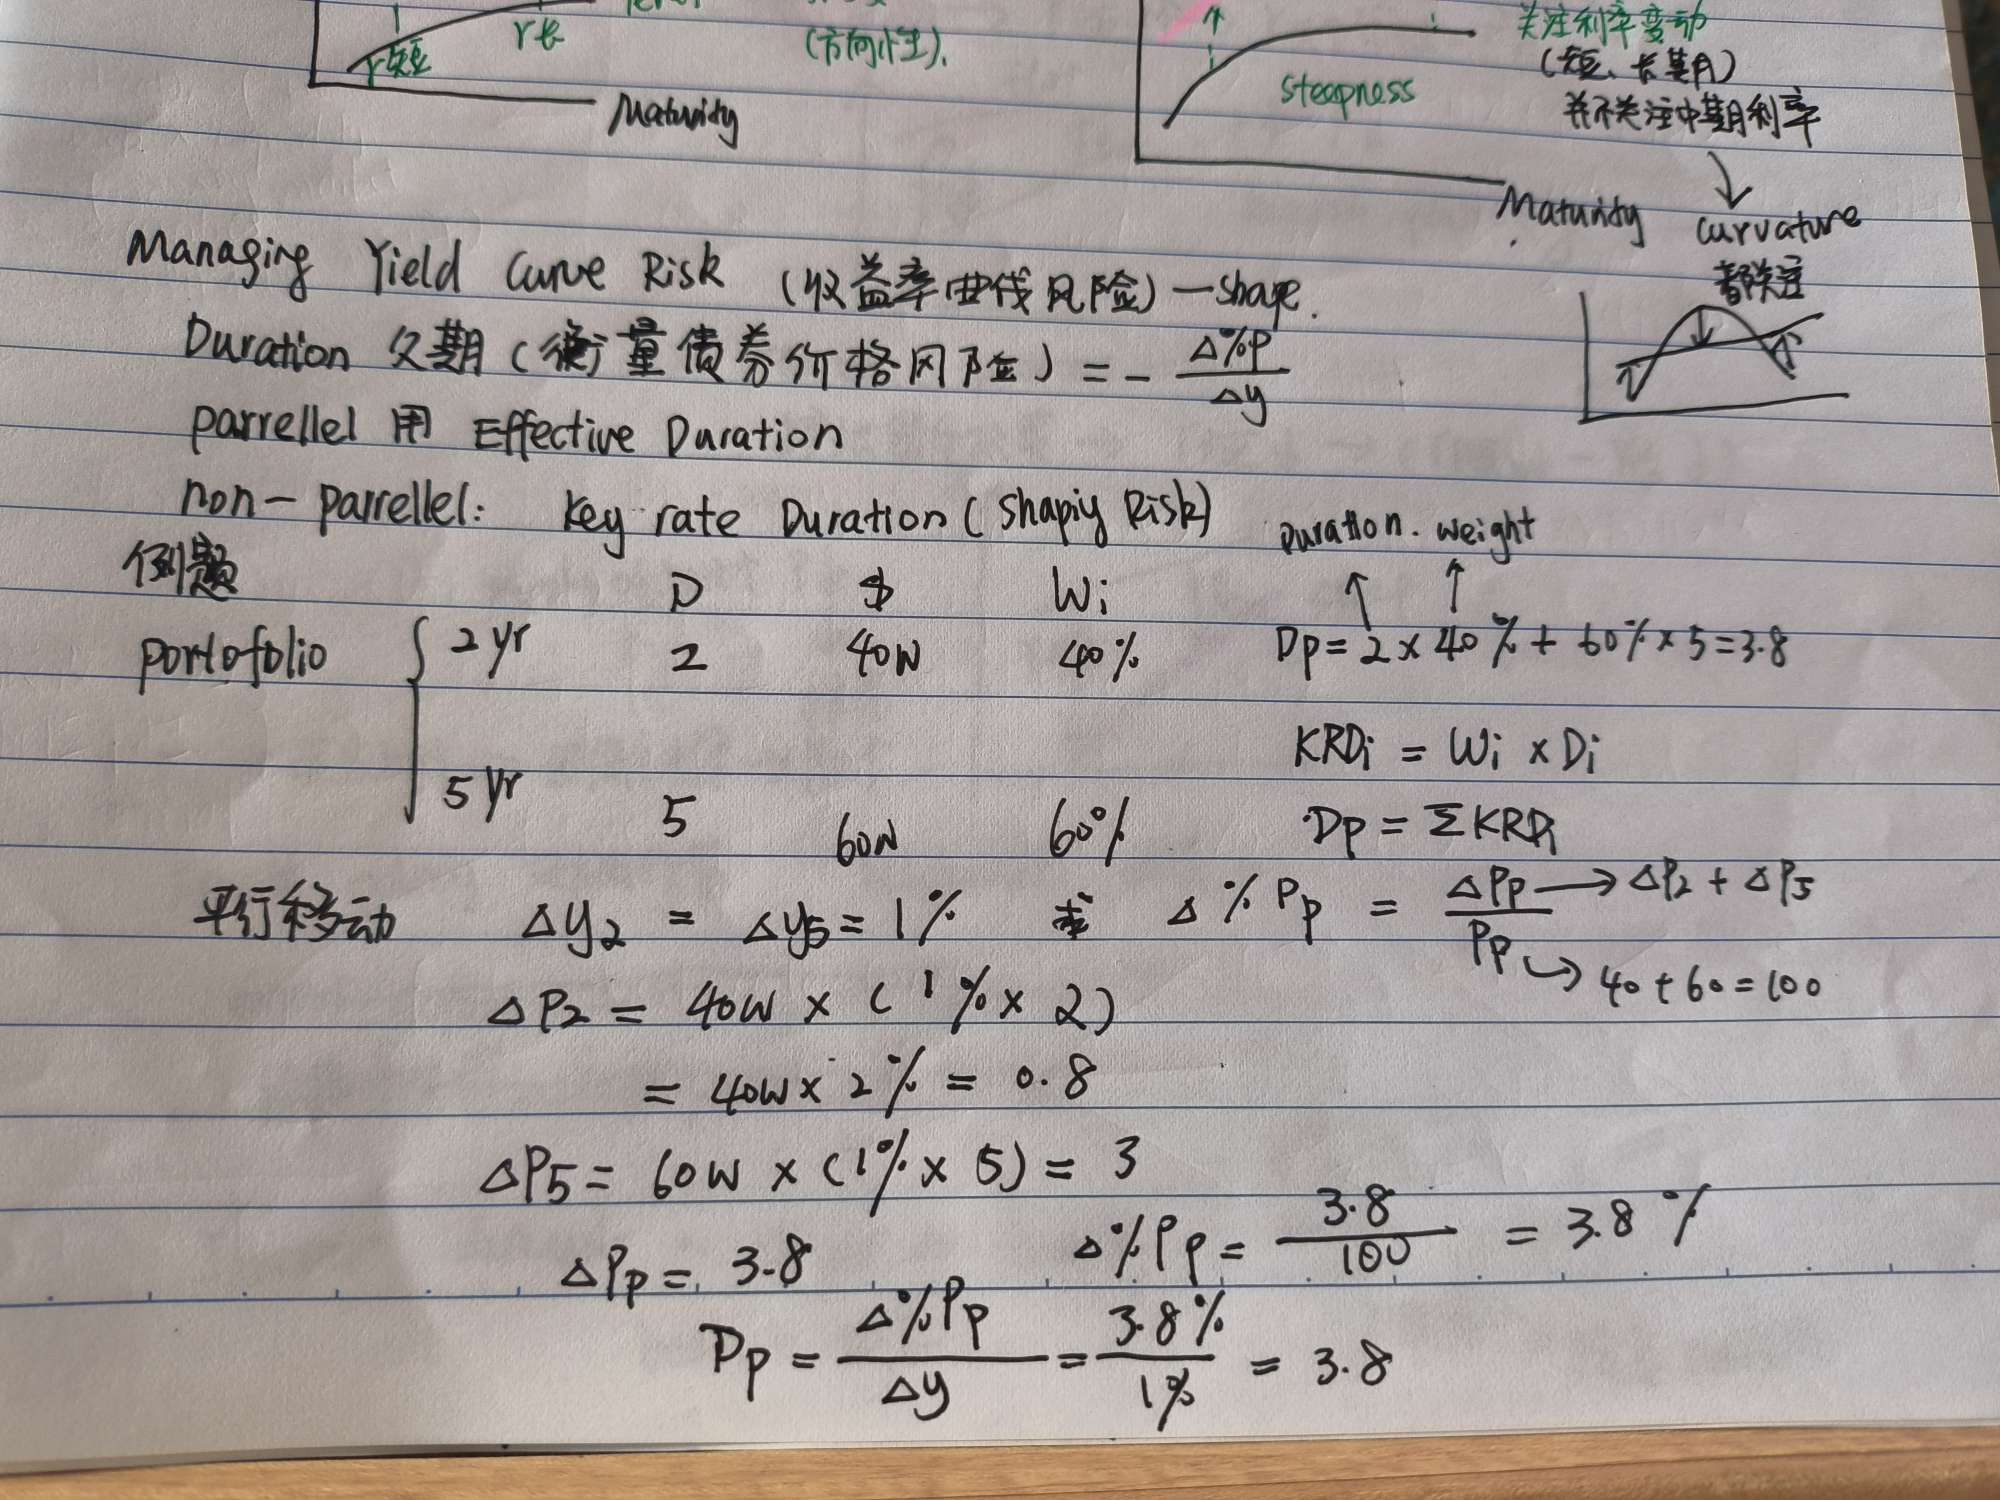 r短
r长
(方向性).
Maturity
关注利率变动
(短、长期)
steepness
并不关注中期利率
Maturity
curvature
都关注
Managing Yield Curve Risk (收益率曲线风险) — shape.
Duration 久期 (衡量债券价格风险) = - Δ%P / Δy
parrellel 用 Effective Duration
non-parrellel: key rate Duration (shapiy Risk)
Duration. weight
例题
D $ Wi
portofolio { 2yr 2 40W 40% Dp = 2 × 40% + 60% × 5 = 3.8
KRDi = Wi × Di
5yr 5 60W 60% Dp = ΣKRDi
平行移动 Δy2 = Δy5 = 1% Δ%Pp = ΔPp / Pp
→ ΔP2 + ΔP5
→ 40 + 60 = 100
ΔP2 = 40W × (1% × 2)
= 40W × 2% = 0.8
ΔP5 = 60W × (1% × 5) = 3
ΔPp = 3.8 Δ%Pp = 3.8 / 100 = 3.8%
Dp = Δ%Pp / Δy = 3.8% / 1% = 3.8